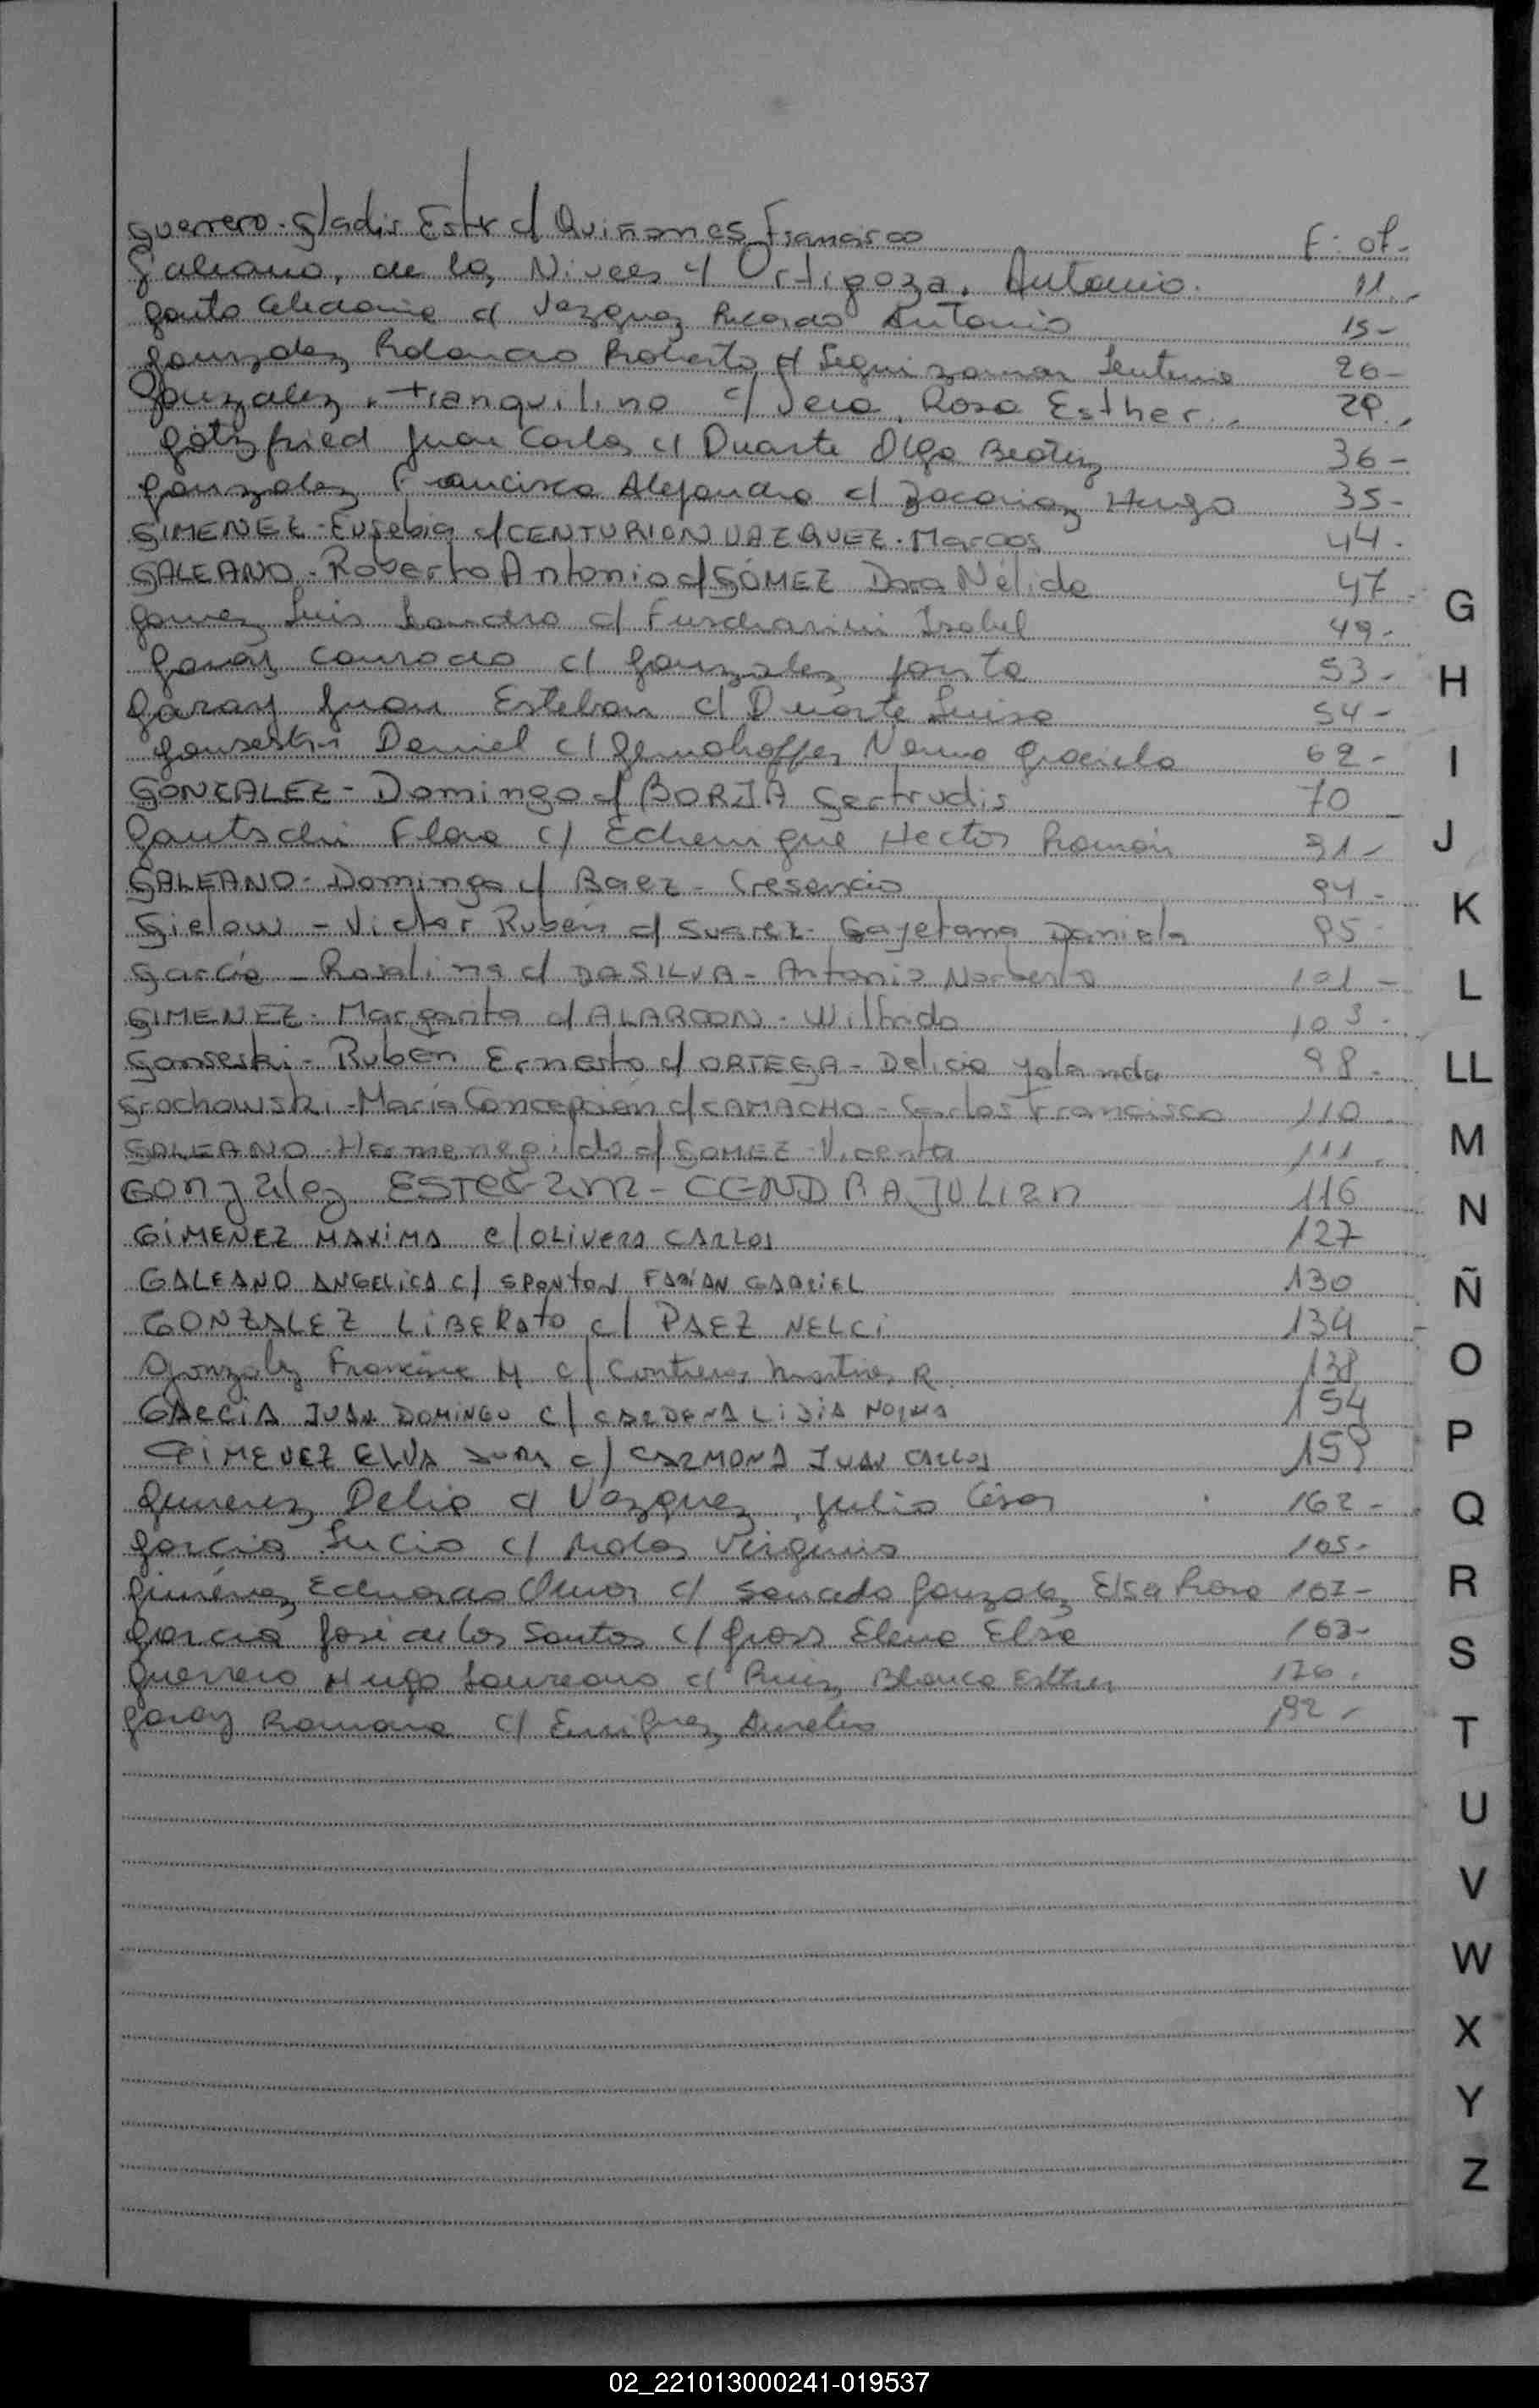 Guerrero - Gladis Estr c/ Quiñones Francisco F: 01-
Galeano, de las Nieves c/ Ortigoza, Antonio. 11.-
Gauto Celedonia c/ Vazquez Ricardo Antonio 15-
Gonzalez Rolando Roberto c/ Seguizamon 20-
Gonzalez, Tranquilino c/ Vera, Rosa Esther.- 29.,
Götzfried Juan Carlos c/ Duarte Olga Beatriz 36-
Gonzalez Francisca Alejandra c/ Zacarias Hugo 35-
GIMENEZ - Eusebia c/ CENTURION VAZQUEZ - Marcos 44.
GALEANO - Roberto Antonio c/ GÓMEZ Dora Nélida 47.
Gomez Luis c/ Isabel 49.-
Garay Conrado c/ Gonzalez 53.-
Garay Juan Esteban c/ Duarte Luisa 54-
Daniel c/ Norma Graciela 62-
GONZALEZ - Domingo c/ BORJA Gertrudis 70
Gautschi Flora c/ Echenique Hector Ramón 91-
GALEANO - Domingo c/ Baez - Cresencio 94-
Gielow - Victor Rubén c/ Suarez - Gayetana Daniela 95-
García - Rosalina c/ DA SILVA - Antonio Norberto 101-
GIMENEZ - Margarita c/ ALARCON - Wilfrido 103-
Gonseski - Rubén Ernesto c/ ORTEGA - Delicia Yolanda 98-
Grochowski - María Concepción c/ CAMACHO - Carlos Francisco 110
GALEANO - Hermenegildo c/ GOMEZ - Vicenta 111
Gonzalez - CENDRA JULIAN 116
GIMENEZ MAXIMA c/ OLIVERA CARLOS 127
GALEANO ANGELICA c/ SPONTON FABIAN GABRIEL 130
GONZALEZ LIBERATO c/ PAEZ NELCI 134
Gonzalez M c/ Contreras R. 138
GARCIA JUAN DOMINGO c/ CARDENA LIDIA NORMA 154
GIMENEZ ELVA c/ CARMONA JUAN CARLOS 159
Gimenez Delia c/ Vazquez, Julio César 162-
Garcia Lucio c/ Molas Virginia 165-
Giménez Eduardo Omar c/ Saucedo Gonzalez Elsa Rosa 167-
Garcia José de los Santos c/ Gross Elena Elsa
Guerrero Hugo Laureano c/ Ruiz, Blanca Esther 176.
Garay Romana c/ Enriquez Aurelio 192-
G
H
I
J
K
L
LL
M
N
Ñ
O
P
Q
R
S
T
U
V
W
X
Y
Z
02_221013000241-019537